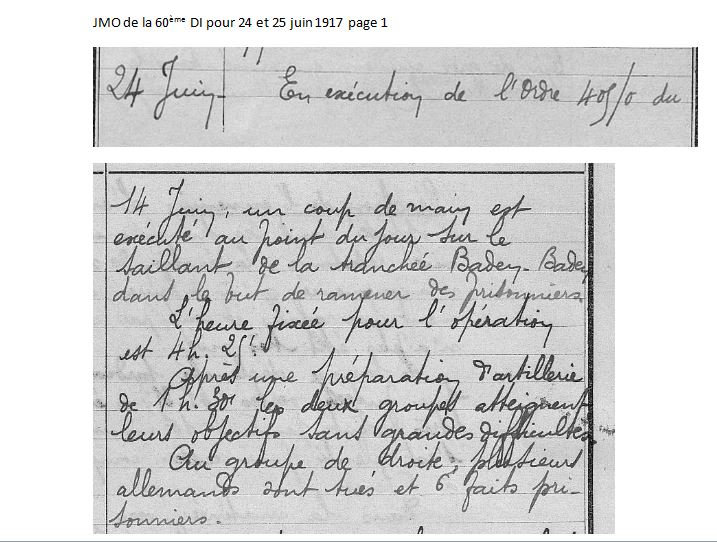 JMO de la 60ème DI pour 24 et 25 juin 1917 page 1
24 Juin_ En exécution de l'Ordre 405/0 du
14 Juin, un coup de main est
exécuté au point du jour sur le
saillant de la tranchée Baden-Baden
dans le but de ramener des prisonniers.
L'heure fixée pour l'opération
est 4h. 25'.
Après une préparation d'artillerie
de 1h. 30' les deux groupes atteignent
leurs objectifs sans grandes difficultés.
Au groupe de droite, plusieurs
allemands sont tués et 6 faits pri-
sonniers.